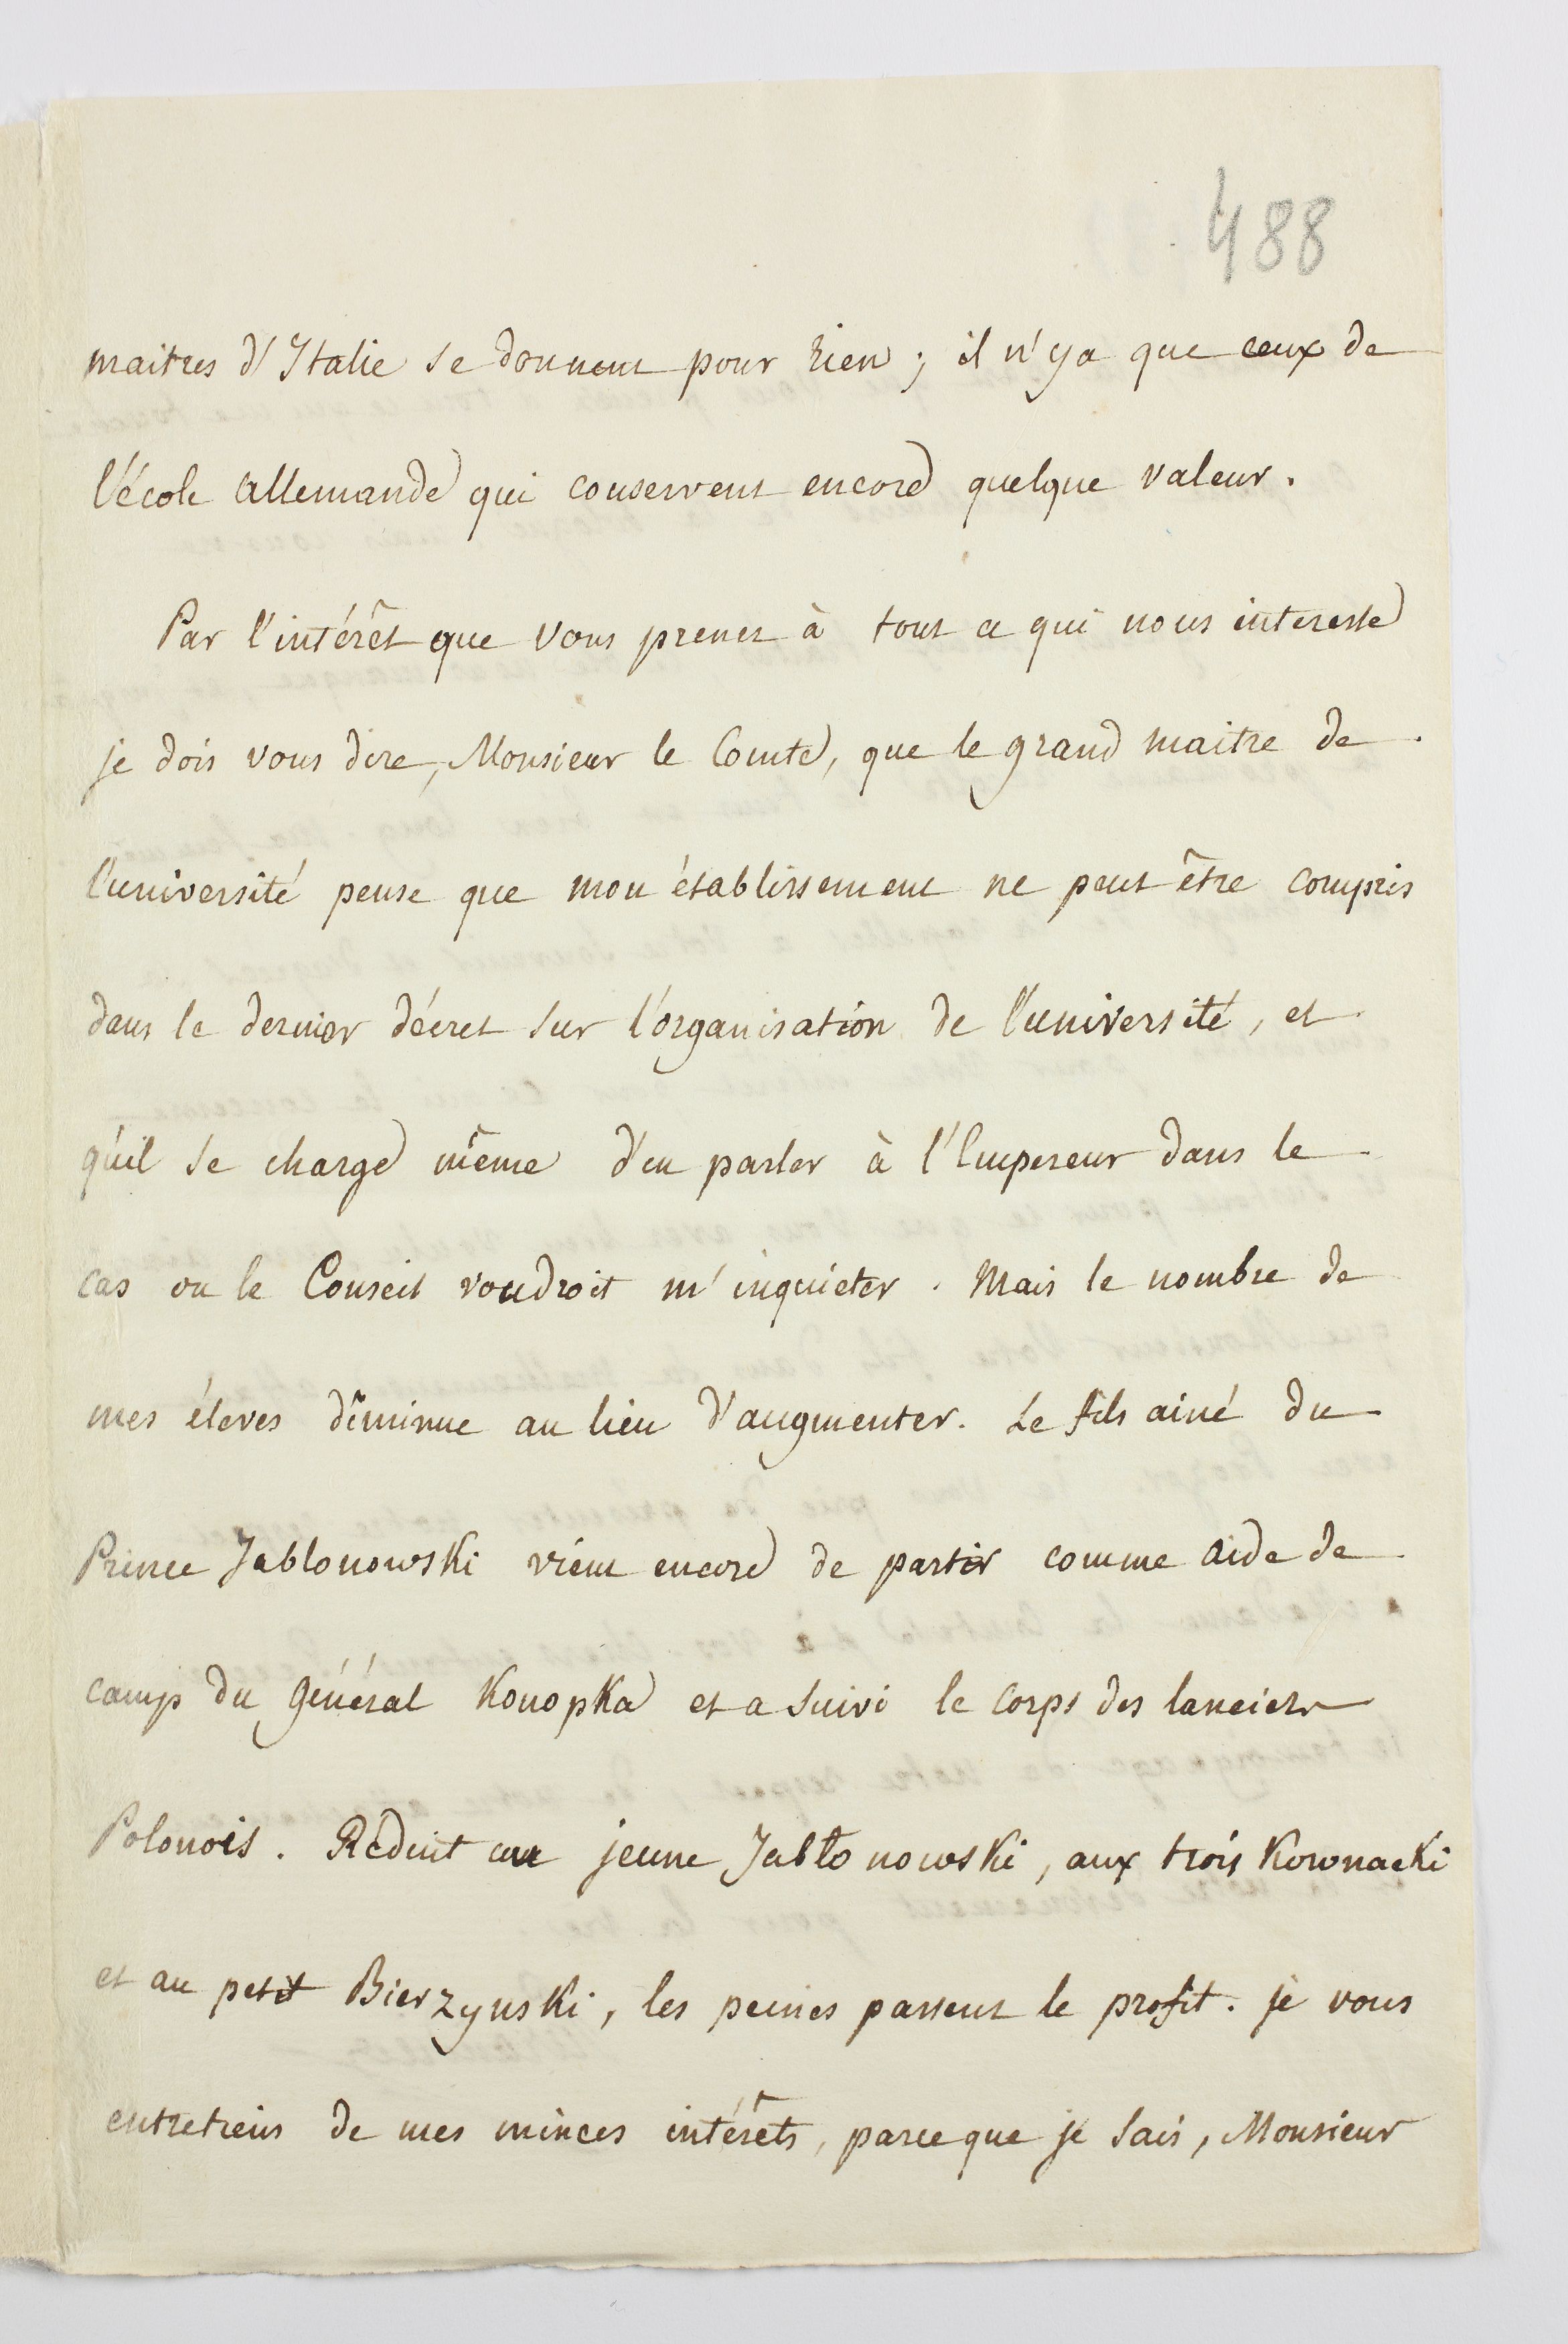 488
maitres d'Italie se donnent pour rien; il n'y a que ceux de
l'école allemande qui conservent encore quelque valeur.
Par l'intérêt que vous prenez à tout ce qui nous interesse
je dois vous dire, Monsieur le Comte, que le grand maitre de
l'université pense que mon établissement ne peut être compris
dans le dernier décret sur l'organisation de l'université, et
qu'il se charge même d'en parler à l'Empereur dans le
cas ou le Conseil voudroit m'inquieter. Mais le nombre de
mes éleves diminue au lieu d'augmenter. Le fils ainé du
Prince Jablonowski vient encore de partir comme aide de
camp du Général Konopka et a suivi le corps des lanciers
Polonois. Réduit au jeune Jabłonowski, aux trois Kownacki
et au petit Bierzynski, les peines passent le profit. je vous
entretiens de mes minces intérêts, parceque je sais, Monsieur